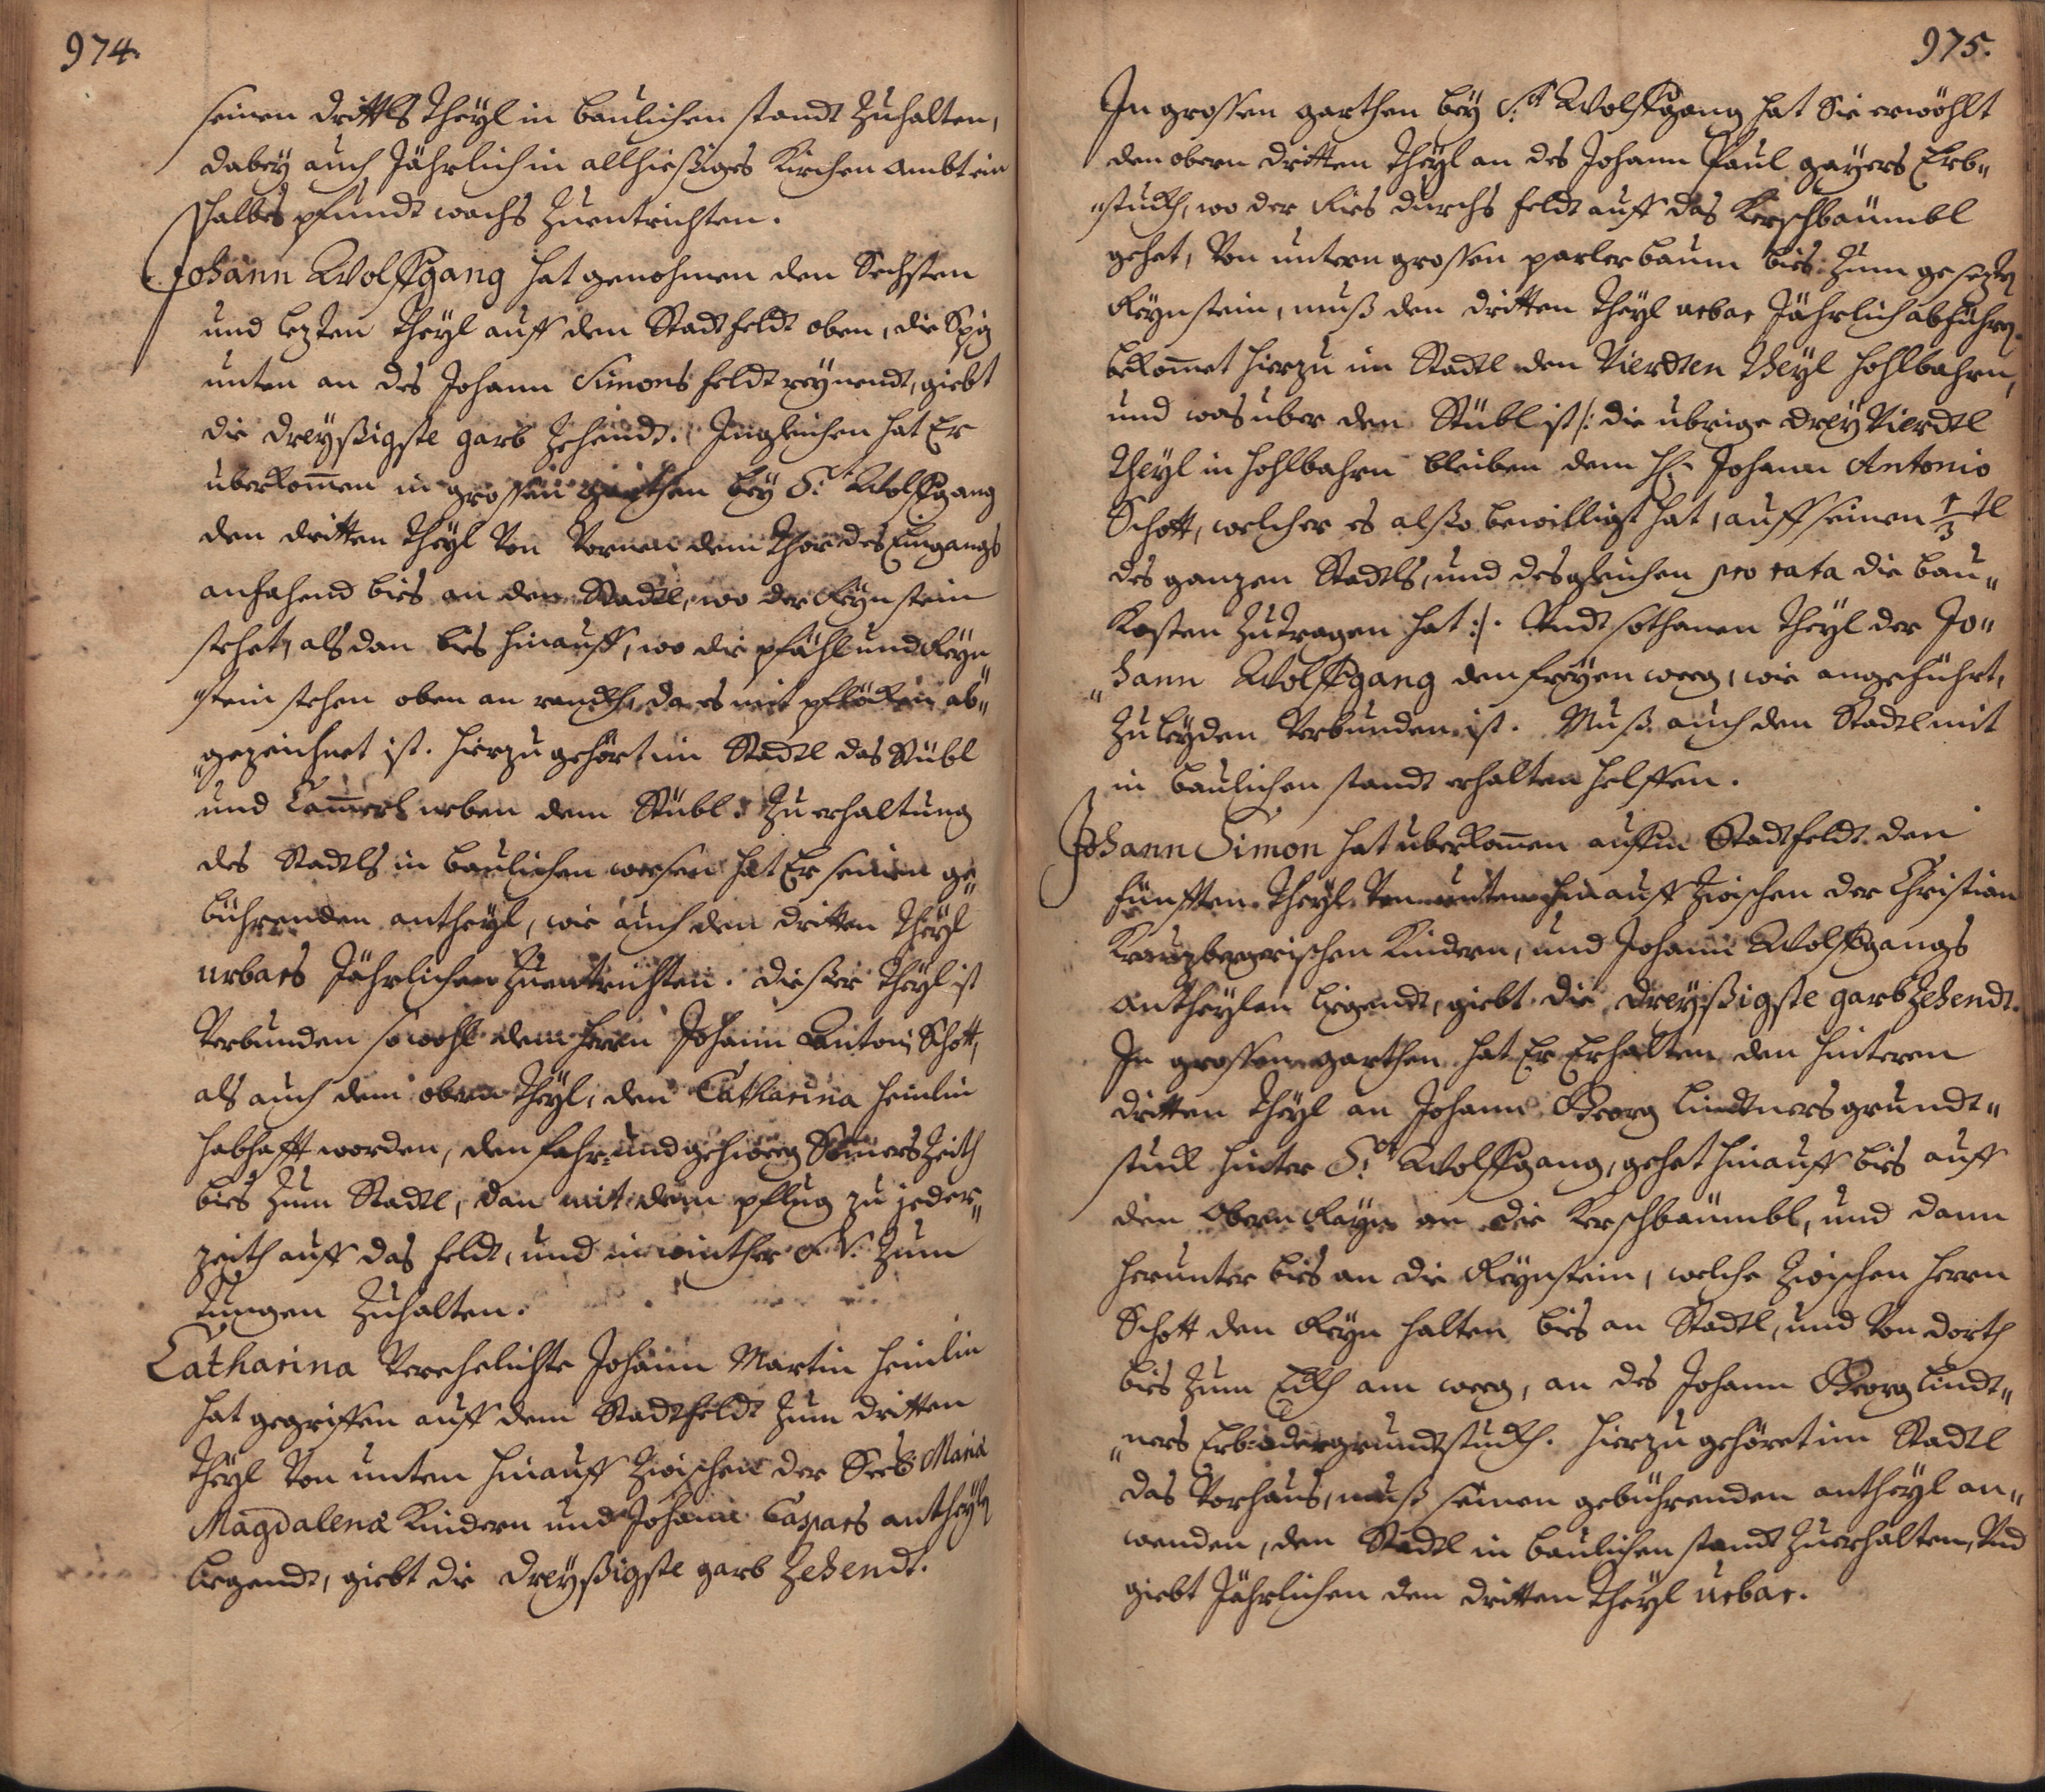 974.
seinen drittls Theÿl in baulichen standt zuhalten,
dabeÿ auch Jährlich in allhießiges Kirchen ambt ein
halbes pfundt wachs zuentrichten.
Johann Wolffgang hat genohmen den Sechsten
und lezten Theÿl auff den Stadtfeldt oben, die Spiz
unten an des Johann Simons feldt reÿnendt, giebt
die dreÿßigste garb Zehendt. Ingleichen hat Er
überkom̄en in grossen garthen beÿ S:t Wolffgang
den dritten Theÿl Von Vornen dem Thor des Eingangs
anfahend bies an den Stadl, wo der Reÿnstein
stehet, als dan bies hinauff, wo die pfähl und Reÿn„
„stein stehen oben an randth, da es mit pflöcken ab„
„gezeichnet ist. Hierzu gehört im Stadl das Stübl
und Cam̄erl neben dem Stübl. Zu erhaltung
des Stadls in baulichen weesen hat Er seinen ge„
bührenden antheÿl, wie auch den dritten Theÿl
urbars Jährlichen zuentrichten. Dießer Theÿl ist
Verbunden sowohl dem Herrn Johann Antoni Schott,
als auch dem obern Theÿl, den Catharina Heinlin
habhafft worden, den fahr- und gehweeg Som̄ers Zeith
bies zum Stadl, dan mit dem pflug zu jeder„
zeith auff das feldt, und in winther S. V. zum
tungen zuhalten.
Catharina Verehelichte Johann Martin Heinlin
hat gegriffen auff dem Stadtfeldt zum dritten
Theÿl Von unten hinauff zwischen der Maria
Magdalena Kindern und Johann Caspars antheÿln
liegendt, giebt die dreÿßigste garb Zehendt.
975.
In grossen garthen beÿ S:t Wolffgang hat Sie erwöhlt
den obern dritten Theÿl an des Johann Paul gaÿers Erb„
„stuckh, wo der Ries durchs feldt auff das Kerschbaümbl
gehet, Von untern grossen parlerbaum bies zum gesezten
Reÿnstein, muß den dritten Theÿl urbar Jährlich abführen.
bekom̄et hierzu im Stadl den Vierdten Theÿl Hohlbahrn,
und was uber den Stübl ist /: die ubrige dreÿ Vierdtl
Theÿl in Hohlbahrn bleiben dem H: Johann Antonio
Schott, welcher es alßo bewilliget hat, auff seinen 1/3tl
des ganzen Stadls, und desgleichen pro rata die bau„
Kosten zutragen hat :/. Undt sothanen Theÿl der Jo„
„hann Wolffgang den freÿen weeg, wie angeführt,
zuleÿden Verbunden ist. Muß auch den Stadl mit
in baulichen standt erhalten helffen.
Johann Simon hat uberkom̄en auffm Stadtfeldt den
fünfften Theÿl Von unten hinauff zwischen der Christian
Kreuzbergerischen Kindern, und Johann Wolffgangs
antheÿlen liegendt, giebt die dreÿßigste garb Zehendt.
In grossen garthen hat Er Erhalten den hinteren
dritten Theÿl an Johann Georg Lindtners grundt„
stuck hinter S:t Wolffgang, gehet hinauff bies auff
den obern Reÿn an die Kerschbaümbl, und dann
herunter bies an die Reÿnstein, welche zwischen Herrn
Schott den Reÿn halten bies an Stadl, und Von dorth
bies zum Eckh am weeg, an des Johann Georg Lindt„
„ners Erb- oder grundtstuckh. Hierzu gehöret im Stadl
das Vorhaus, muß seinen gebührenden antheÿl an„
wenden, den Stadl in baulichen standt zuerhalten, Und
giebt Jährlichen den dritten Theÿl urbar.